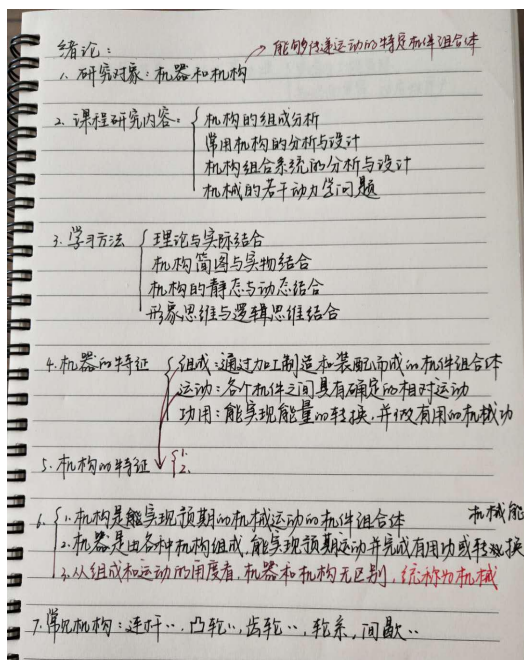 绪论：
→能够传递运动的特定机件组合体
1. 研究对象：机器和机构
2. 课程研究内容：{ 机构的组成分析
常用机构的分析与设计
机构组合系统的分析与设计
机械的若干动力学问题
3. 学习方法 { 理论与实际结合
机构简图与实物结合
机构的静态与动态结合
形象思维与逻辑思维结合
4. 机器的特征 { 组成：通过加工制造和装配而成的机件组合体
运动：各个机件之间具有确定的相对运动
功用：能实现能量的转换，并做有用的机械功
5. 机构的特征 { 1.
2.
6. { 1. 机构是能实现预期的机械运动的机件组合体
机械能
2. 机器是由各种机构组成，能实现预期运动并完成有用功或转换
3. 从组成和运动的角度看，机器和机构无区别，统称为机械
7. 常见机构：连杆‥，凸轮‥，齿轮‥，轮系，间歇‥